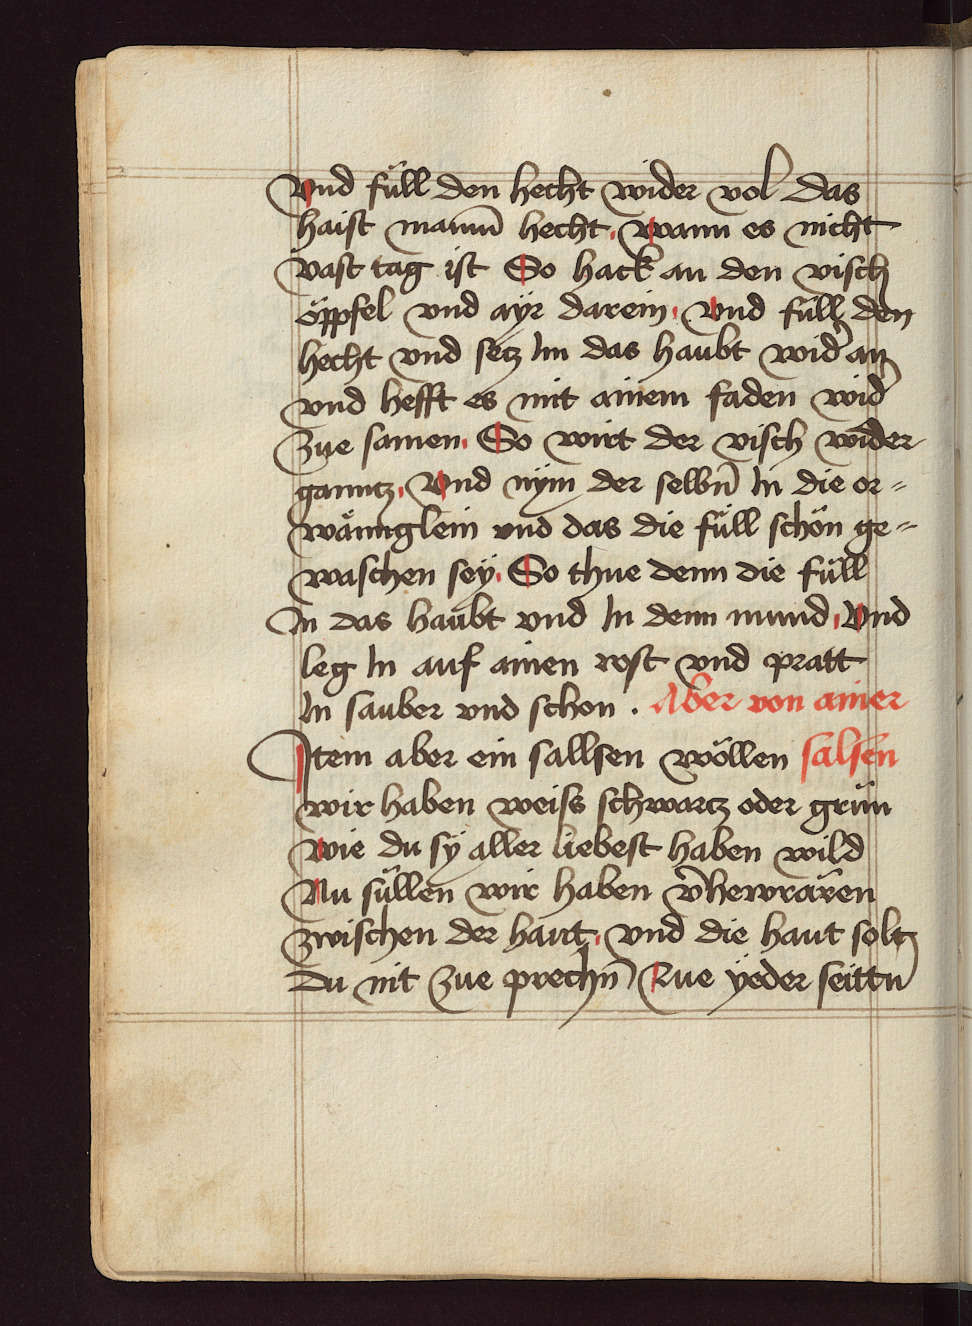 vnd füll den hecht wider vol das
haist mann̄ hecht. Wann es nicht
vast tag ist So hack an den visch
öppfel vnd ayr darein. Vnd füll den
hecht vnd setz Im das haubt wid̄ an
vnd hefft es mit ainem faden wid̄
zue samen. So wirt der visch wider
ganntz. Vnd nÿm der selbn̄ In die or=
wännglein vnd das die füll schön ge=
waschen seÿ. So thue denn die füll
In das haubt vnd In denn mund. Vnd
leg In auf ainen rost vnd pratt
In sauber vnd schon. Aber von ainer
Item aber ein sallsen wöllen salsen
wir haben weiss schwartz oder grün
wie du sÿ aller liebest haben wild
Nu süllen wir haben
zwischen der haut. vnd die haut solt
du nit zue prechn̄ Zue ÿeder seittn̄